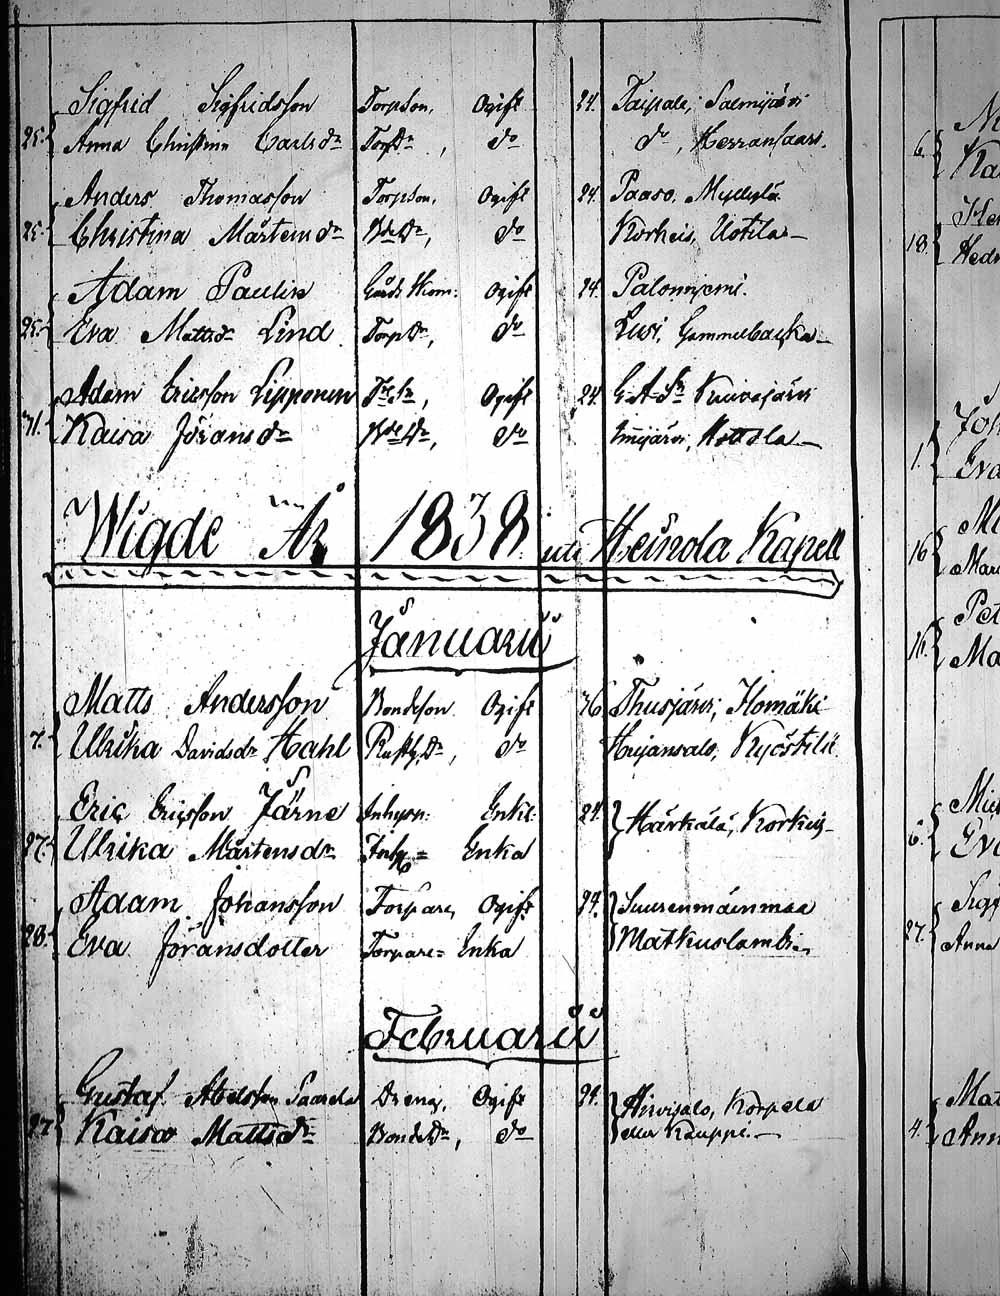 Sigfrid Sigfridsson Torpson, Ogift 24. Taipale, Salmijärvi
25. Anna Christina Carlsdr TorpDr, do do, Herransaari.
Anders Thomasson Torpson, Ogift 24. Paaso, Myllylä
25. Christina Mårtensdr BdeDr, do Korkeis, Uotila
Adam Paulin Ogift 24. Palonniemi.
25. Eva Mattsdr Lind TorpDr, do Lusi, Gammelbacka
Adam Ericsson Lipponen Ogift 24.
31. Kaisa Jöransdr BdeDr, do Imijärvi, Hottola
Wigde År 1838 uti Heinola Kapell
Januarii
Matts Andersson Bondeson Ogift 36 Ihusjärvi, Komäki
7. Ulrika Davidsdr Hahl RusthDr, do Heijansalo, Kyöstilä
Eric Ericsson Järne Inhysn: Enkl: 24. Härkälä, Korkeis
27. Ulrika Mårtensdr Enka
Adam Johansson Torpare, Ogift 24. Suurenmäinmaa
28. Eva Jöransdotter Torpare= Enka Matkuslambi
Februarii
Gustaf Abelsson Saarela Dreng, Ogift 24. Hirvisalo, Korpela
27 Kaisa Mattsdr BondeDr, do eller Kauppi.
6.
18.
1.
16
16.
6.
27.
4.